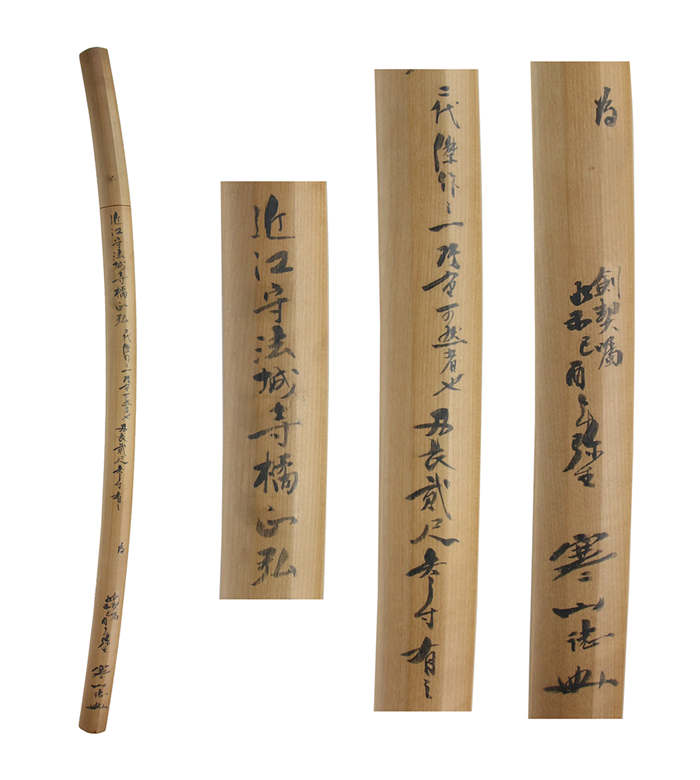 近江守法城寺橘正弘
二代傑作之一珍重可然者也 刃長貳尺参寸有之
為
剣契嘱
昭和己酉年弥生
寒山誌